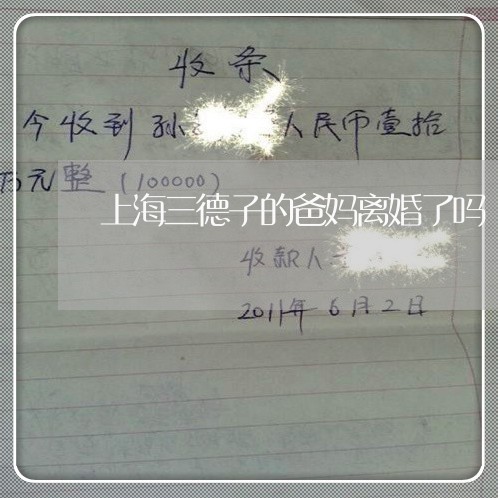 收条
今收到孙 人民币壹拾
万元整(100000)
上海三德子的爸妈离婚了吗
收款人
2011年6月2日